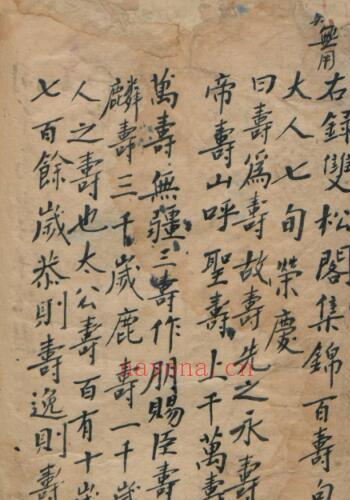 無用
右録雙松閣集錦百壽句
大人七旬榮慶
曰壽爲壽故壽先之永壽
帝壽山呼聖壽上千萬壽
萬壽無疆三壽作朋賜臣壽
麟壽三千歲鹿壽一千歲
人之壽也太公壽百有十歲
七百餘歲恭則壽逸則壽